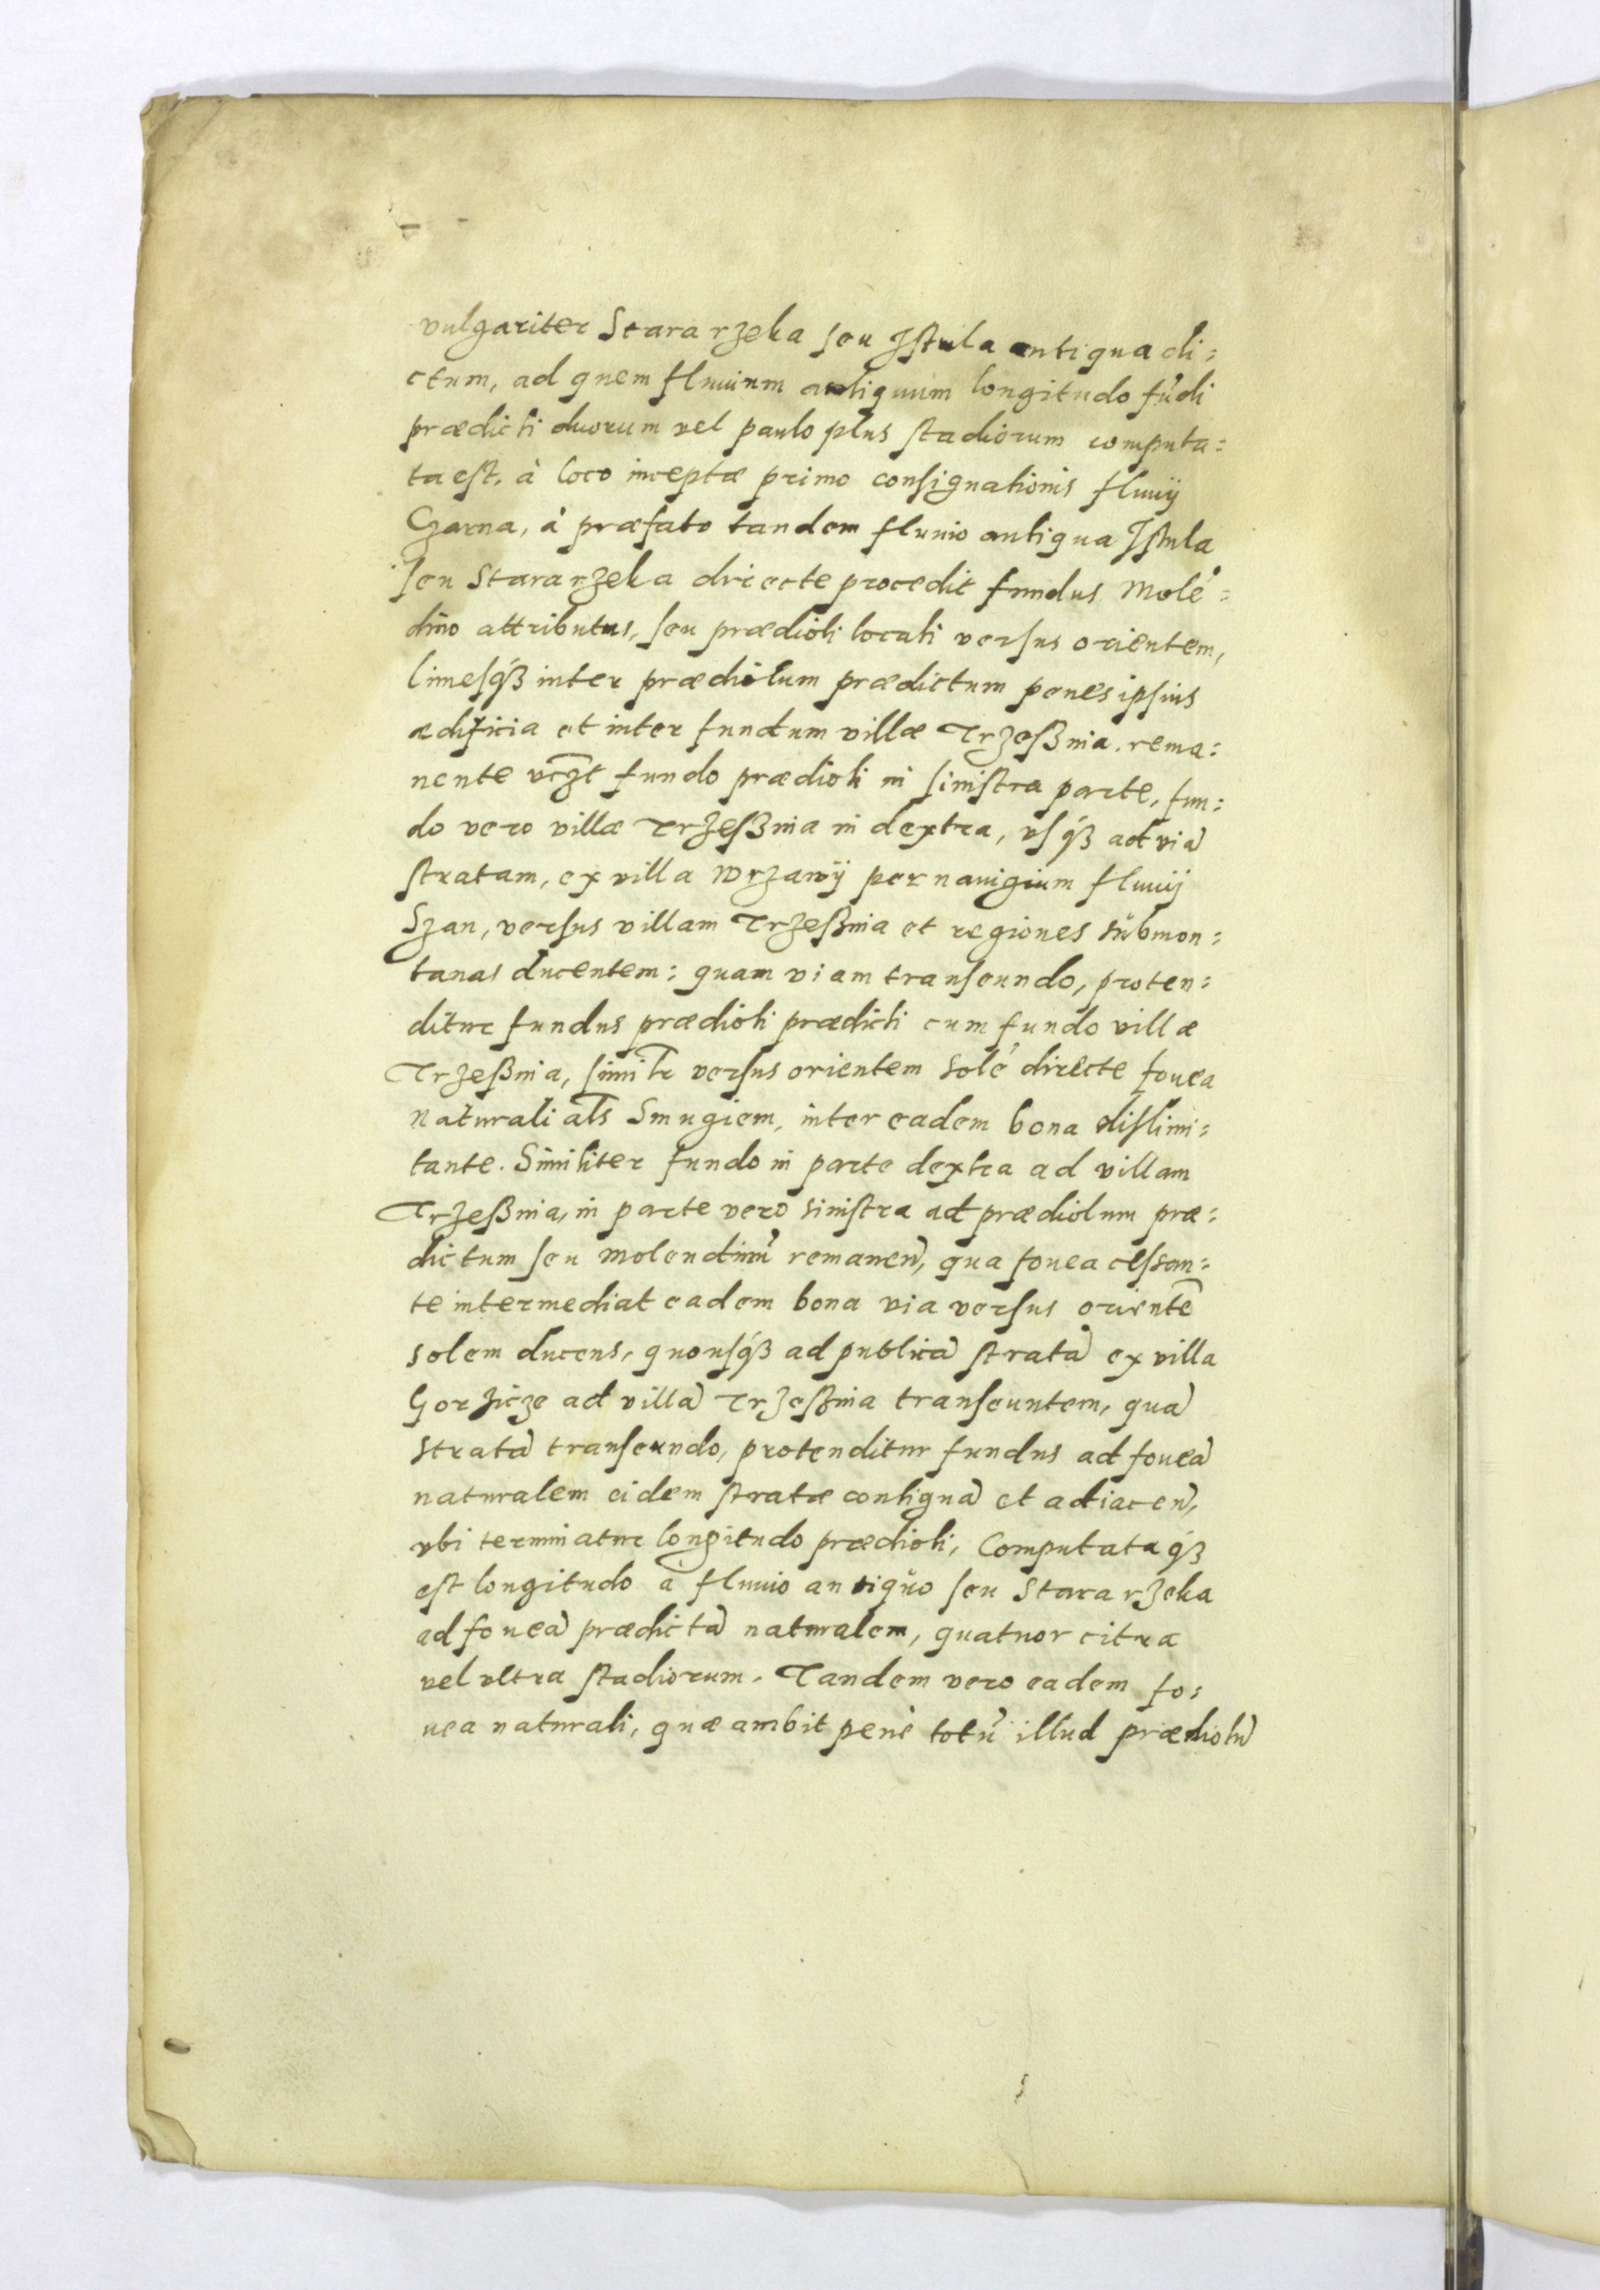 vulgariter Stara rzeka seu Istula antiqua di:
ctum, ad quem fluuium antiquum longitudo fũdi
prædicti duorum vel paulo plus stadiorum computa:
ta est, à loco inceptæ primo consignationis fluuij
Czarna, à præfato tandem fluuio antiqua Istula
seu Stara rzeka directe procedit fundus Molẽ:
dino attributus, seu prædioli locati versus orientem,
limesq́ȝ inter prædiolum prædictum penes ipsius
ædificia et inter fundum villæ Trzeßnia. rema:
nente fundo prædioli in sinistra parte, fun:
do vero villæ Trzeßnia in dextra, vsq́ȝ ad viã
stratam, ex villa Wrzawÿ per nauigium fluuij
Szan, versus villam Trzeßnia et regiones submon:
tanas ducentem: quam viam transeundo, proten:
ditur fundus prædioli prædicti cum fundo villæ
Trzeßnia, similr versus orientem solẽ directe fouea
naturali als Smugiem, inter eadem bona dislimi:
tante. Similiter fundo in parte dextra ad villam
Trzeßnia, in parte vero sinistra ad prædiolum præ:
dictum seu molendinũ remanen̄, qua fouea cessan:
te intermediat eadem bona via versus orientẽ
solem ducens, quousq́ȝ ad publicã stratã ex villa
Gorzicze ad villã Trzeßnia transeuntem, quã
stratã transeundo, protenditur fundus ad foueã
naturalem eidem stratæ contiguã et adiacen̄,
vbi terminatur longitudo prædioli, Computataq́ȝ
est longitudo à fluuio antiquo seu Stara rzeka
ad foueã prædictã naturalem, quatuor citra
vel vltra stadiorum. Tandem vero eadem fo:
uea naturali, quæ ambit penè totũ illud prædiolũ